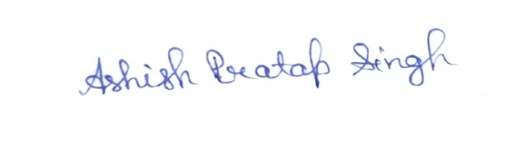 Ashish Pratap Singh